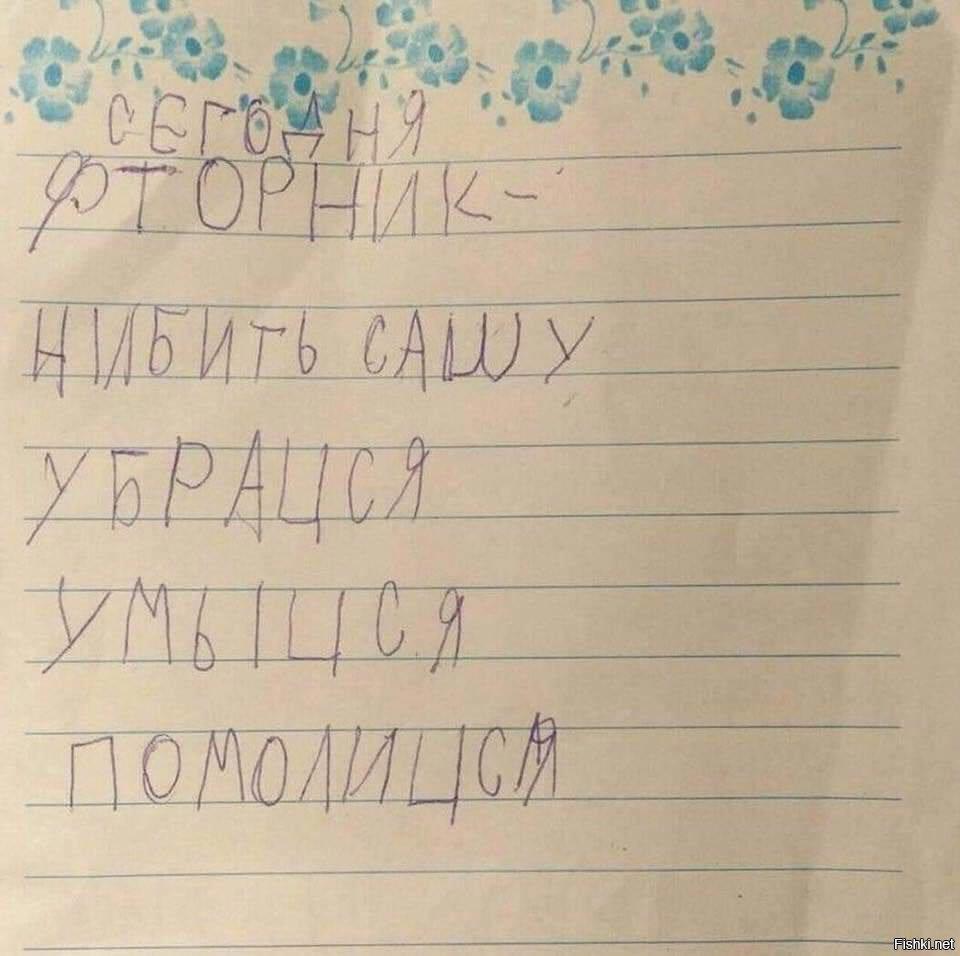 СЕГОДНЯ
ФТОРНИК-
НИБИТЬ САШУ
УБРАЦСЯ
УМЫЦСЯ
ПОМОЛИЦСЯ
Fishki.net